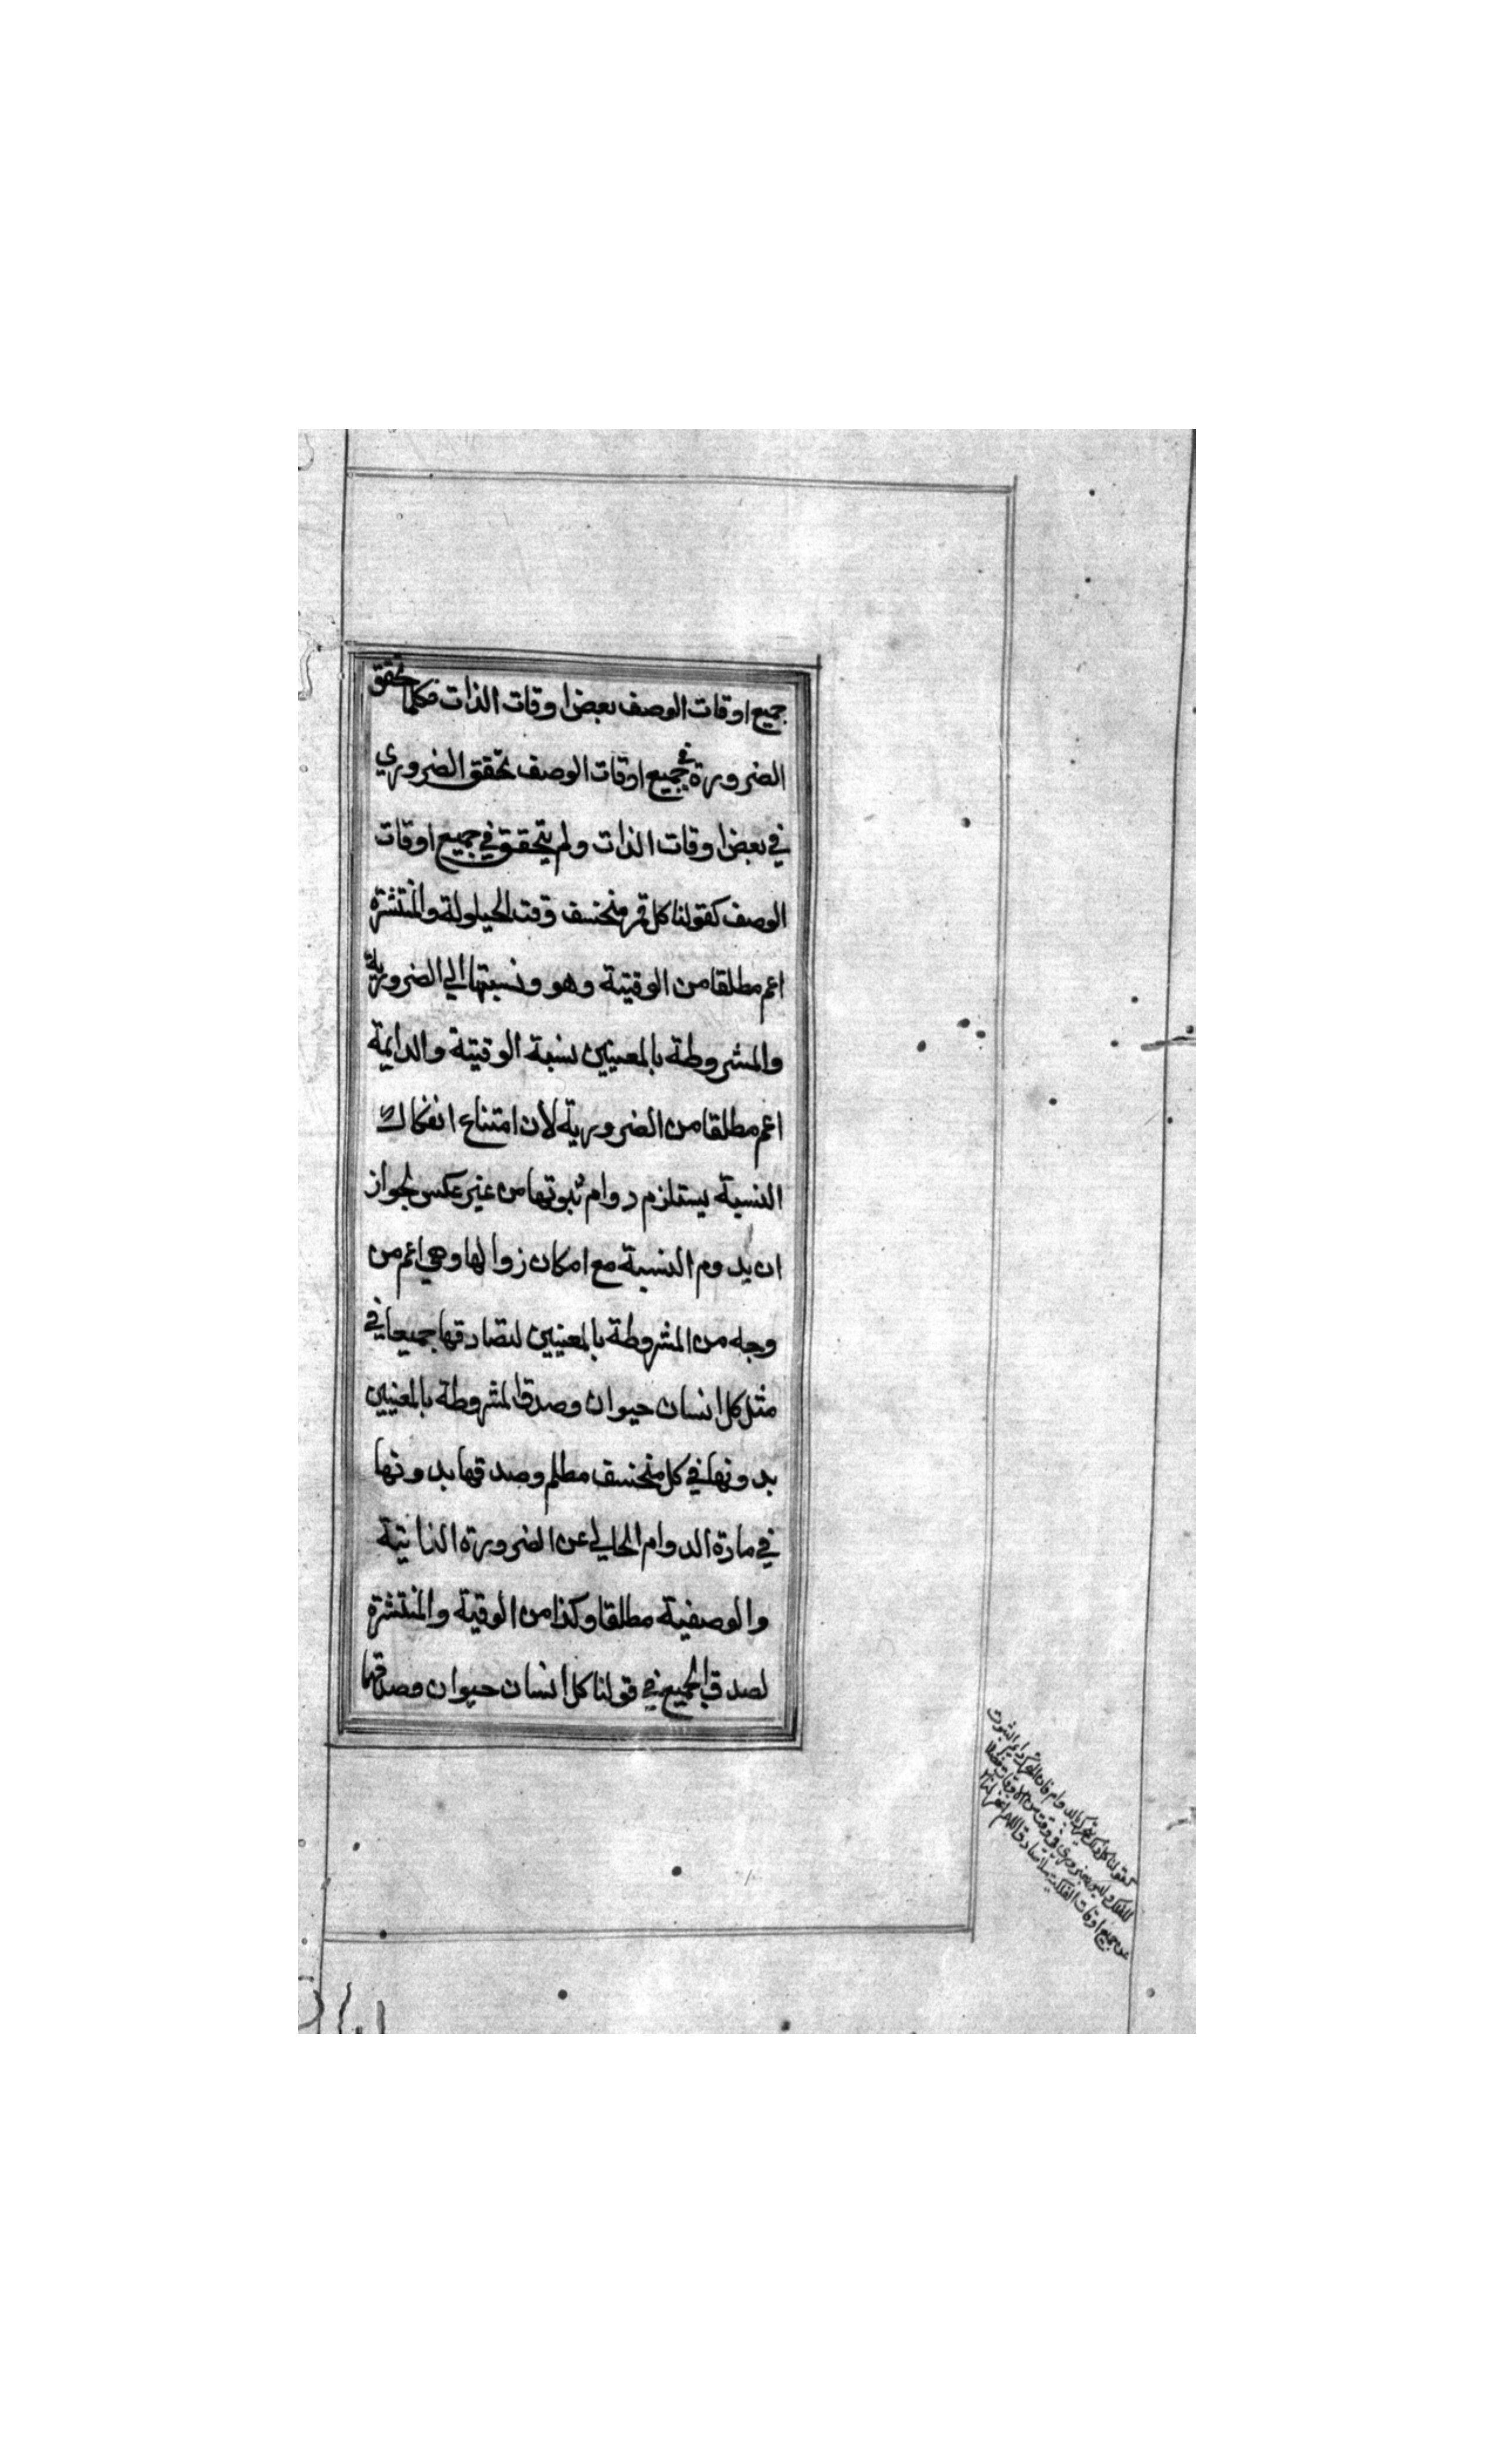 جميع اوقات الوصف بعض اوقات الذات فكلما تحقق
الضرورة في جميع اوقات الوصف تحقق الضروري
في بعض اوقات الذات ولم يتحقق في جميع اوقات
الوصف كقولنا كل قمر منخسف وقت الحيلولة والمنتشرة
اعم مطلقا من الوقتية وهو ونسبتها الي الضرورية
والمشروطة بالمعنيين نسبة الوقتية والدايمة
اعم مطلقا من الضرورية لأن امتناع انفكاك
النسبة يستلزم دوام ثبوتها من غير عكس لجواز
ان يدوم النسبة مع امكان زوالها وهي اعم من
وجه من المشروطة بالمعنيين لتصادقها جميعا في
مثل كل انسان حيوان وصدق المشروطة بالمعنيين
بدونها في كل منخسف مظلم وصدقها بدونها
في مادة الدوام الخالي عن الضرورة الذاتية
والوصفية مطلقا وكذا من الوقتية والمنتشرة
لصدق الجميع في قولنا كل انسان حيوان وصدقهما
كقولنا كل فلك متحرك بالدوام فان التحرك دايم الثبوت
للفلك وليس بضروري في وقت من الاوقات
عن جميع اوقات الفلكية